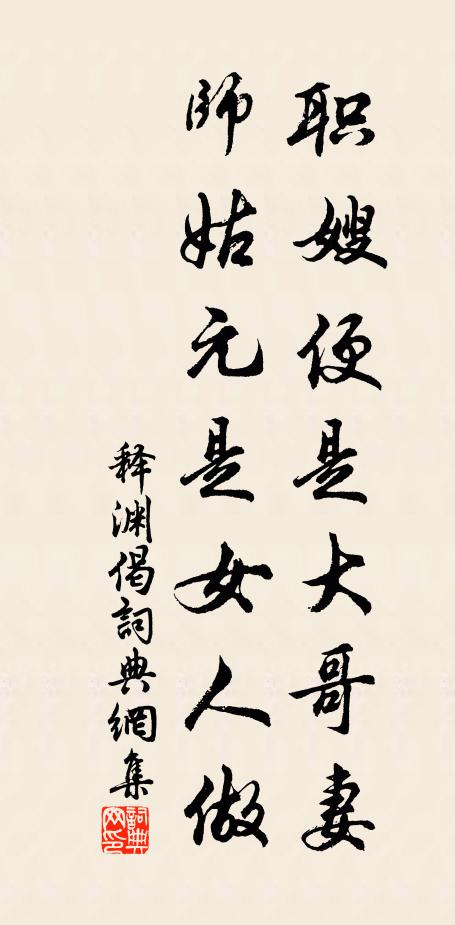 职嫂便是大哥妻
師姑元是女人做
释渊偈詞典網集
詞典网印